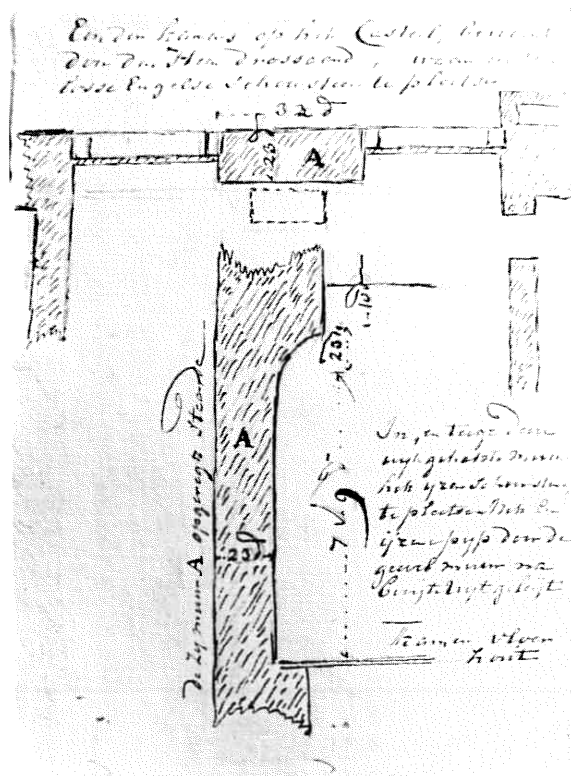 Een der Kamers op het Casteel, bewoont
door den Heer Drossaard, waar in een
losse Engelse Schousteen te plaatse
32 d
23
A
10
23
A
7 v. 9 d
23 d
de zy muur A opgeregte Stand
In, en tegen deese
uytgeholde muur
het yzer Schousteen
te plaatsen
yzere pyp door de
gevel muur na
buyte uytgeleyt
Kamer vloer
hout